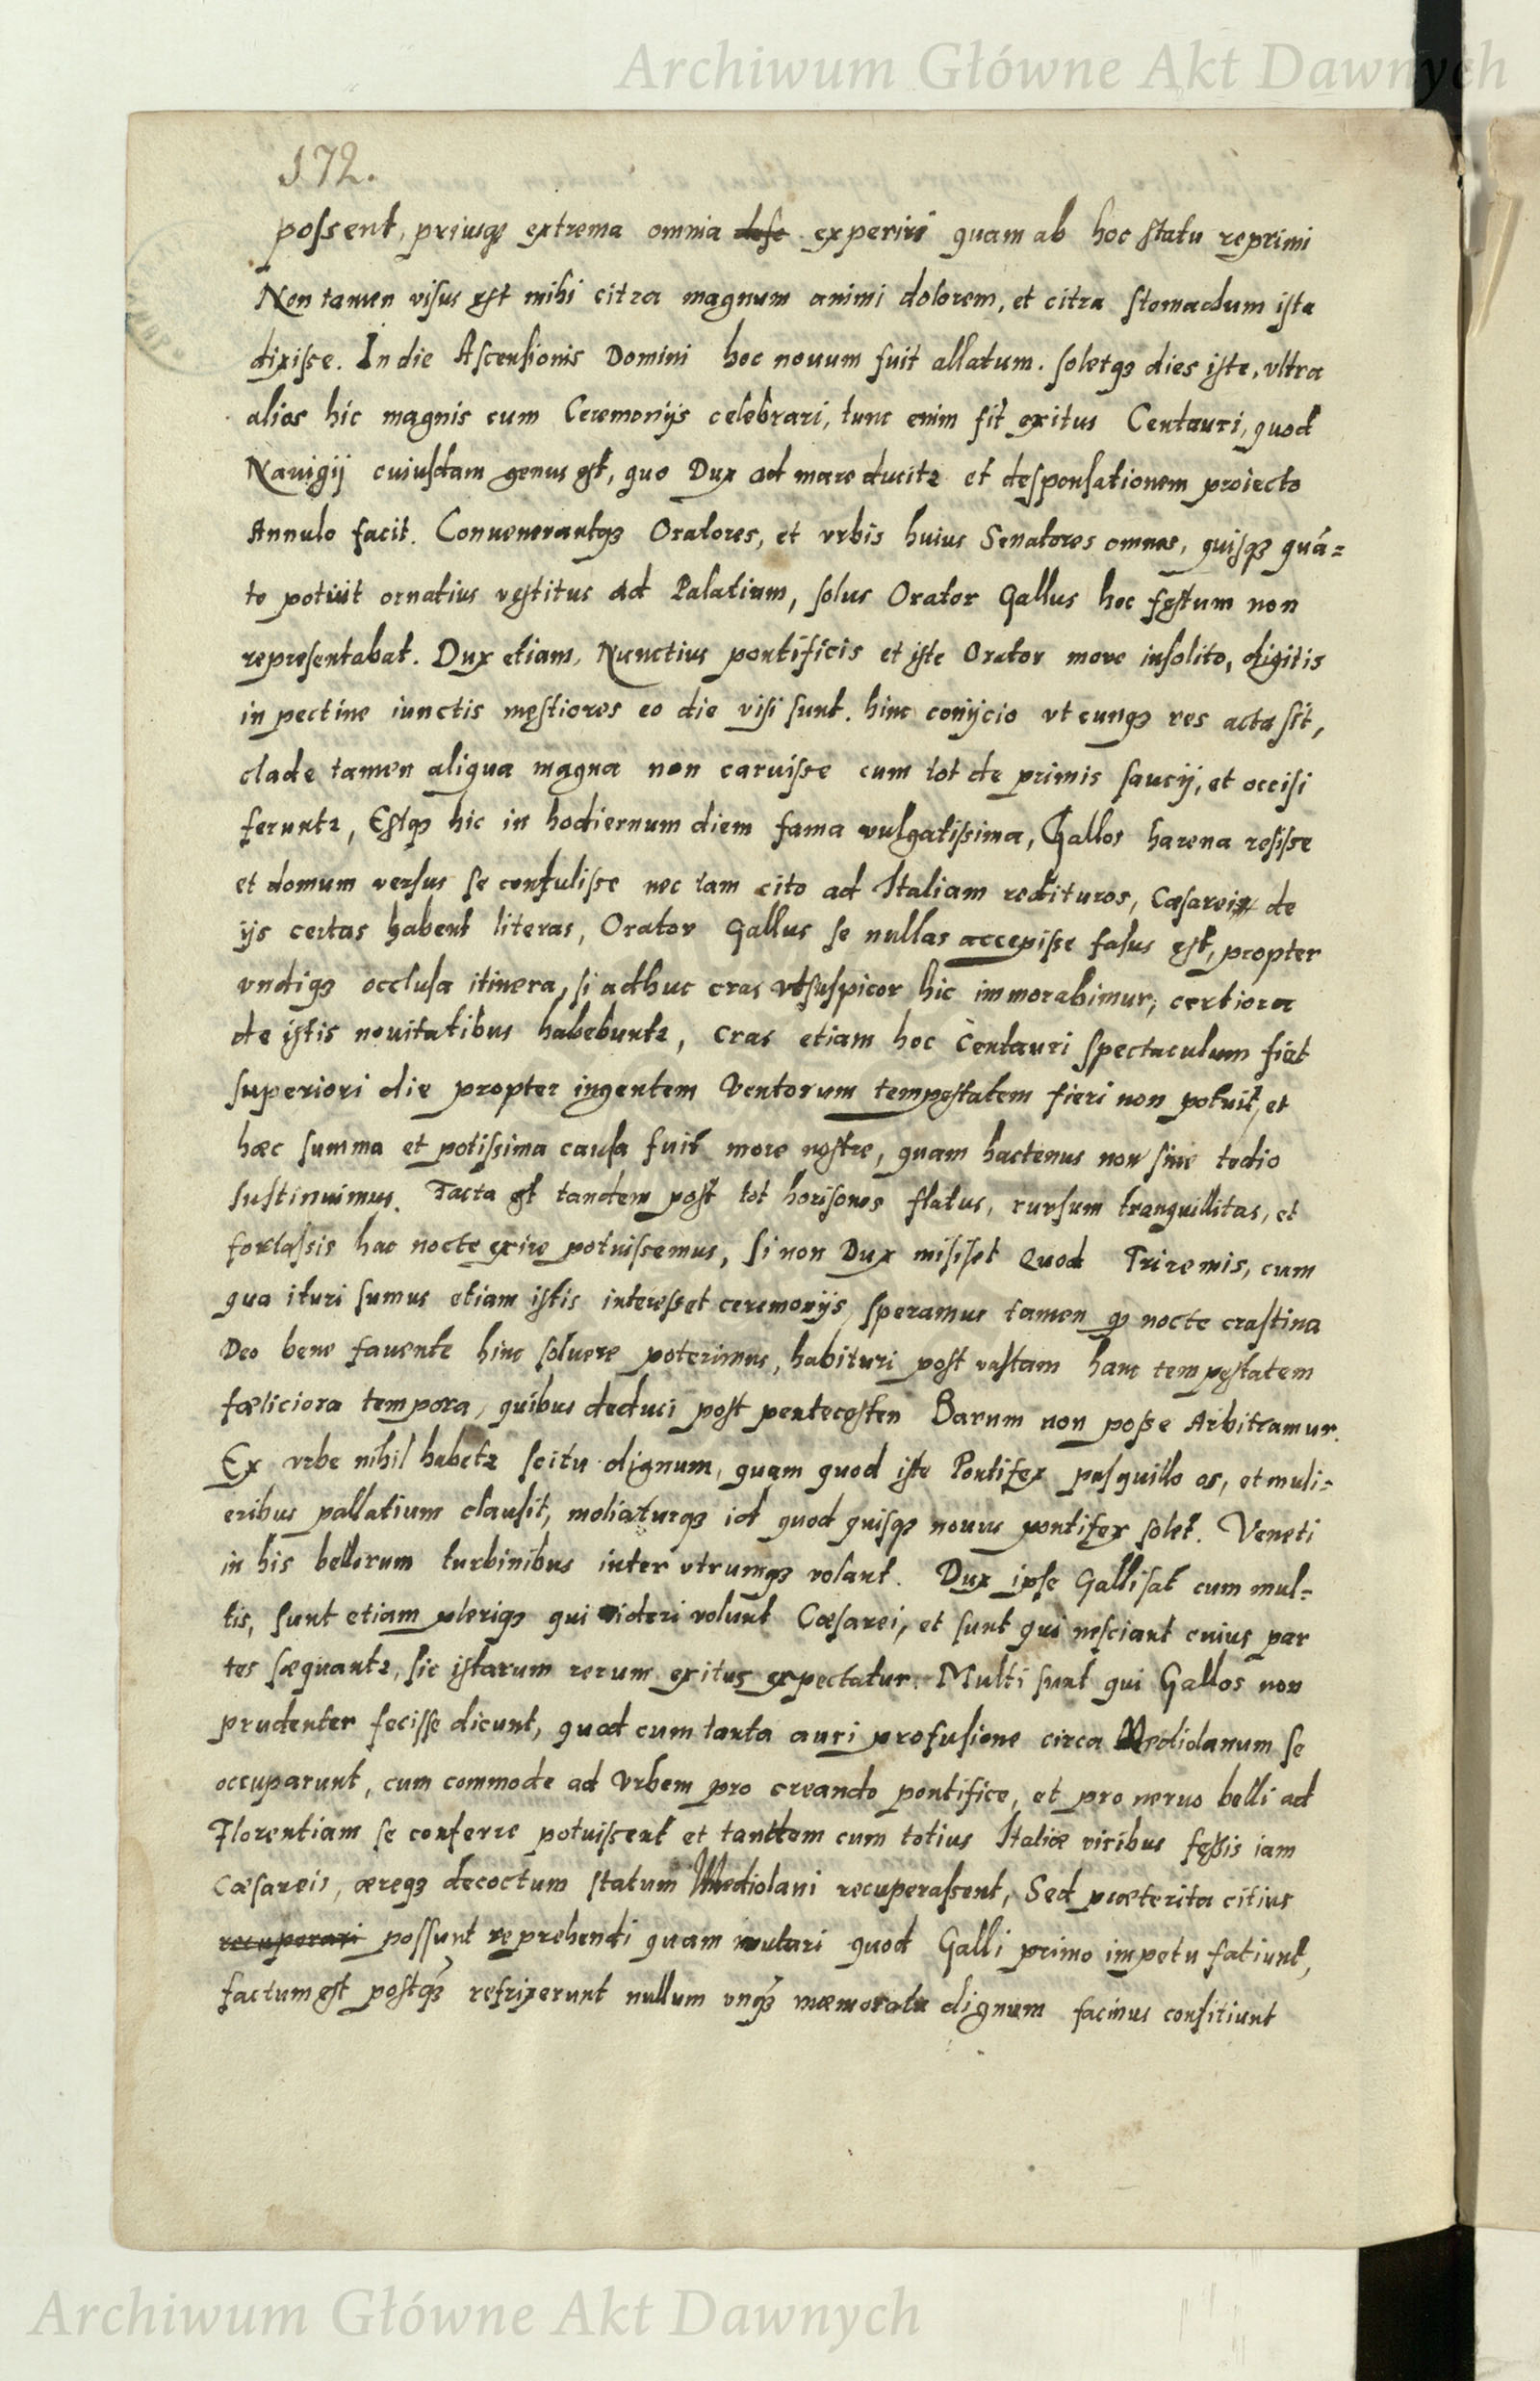 Archiwum Główne Akt Dawnych
172.
possent, priusq3 extrema omnia dese experiri quam ab hoc statu reprimi
Non tamen visus est mihi citra magnum animi dolorem, et citra stomachum ista
dixisse. In die Ascensionis Domini hoc nouum fuit allatum. soletq3 dies iste, vltra
alios hic magnis cum Ceremonijs celebrari, tunc enim fit exitus Centauri, quod
Nauigij cuiusdam genus est, quo Dux ad mare ducit2 et desponsationem proiecto
Annulo facit. Conuenerantq3 Oratores, et vrbis huius Senatores omnes, quisq3 quá=
to potuit ornatius vestitus ad Palatium, solus Orator Gallus hoc festum non
representabat. Dux etiam, Nunctius pontificis et iste Orator more insolito, digitis
in pectine iunctis męstiores eo die visi sunt. hinc conijcio vt cunq3 res acta sit,
clade tamen aliqua magna non caruisse cum tot de primis saucij, et occisi
ferunt2, Estq3 hic in hodiernum diem fama vulgatissima, Gallos harena resisse
et domum versus se contulisse nec tam cito ad Italiam redituros, Cæsareis de
ijs certas habent literas, Orator Gallus se nullas accepisse fasus est, propter
vndiq3 occlusa itinera, si adhuc cras vt suspicor hic immorabimur, certiora
de istis nouitatibus habebunt2, Cras etiam hoc Centauri spectaculum fiet
superiori die propter ingentem Ventorum tempestatem fieri non potuit, et
hæc summa et potissima causa fuit more nostre, quam hactenus non sine tedio
sustinuimus. Facta est tandem post tot horisonos flatus, rursum tranquillitas, et
fortassis hac nocte exire potuissemus, si non Dux misisset Quod Triremis, cum
qua ituri sumus etiam istis interesset ceremonijs speramus tamen q3 nocte crastina
Deo bene fauente hinc soluere poterimus, habituri post vastam hanc tempestatem
fæliciora tempora, quibus deduci post pentecosten Barum non posse Arbitramur.
Ex vrbe nihil habet2 scitu dignum, quam quod iste Pontifex pasquillo os, et muli=
eribus pallatium clausit, moliaturq3 id quod quisq3 nouus pontifex solet. Veneti
in his bellorum turbinibus inter vtrumq3 volant. Dux ipse Gallisat cum mul=
tis, sunt etiam pleriq3 qui videri volunt Cæsarei, et sunt qui nesciant cuius par
tes sæquant2, sic istarum rerum exitus expectatur. Multi sunt qui Gallos non
prudenter fecisse dicunt, quod cum tanta auri profusione circa Mediolanum se
occuparunt, cum commode ad Vrbem pro creando pontifice, et pro neruo belli ad
Florentiam se conferre potuissent et tandem cum totius Italiæ viribus fessis iam
Cæsareis, æreq3 decoctum statum Mediolani recuperassent, Sed præterita citius
recuperari possunt reprehendi quam mutari quod Galli primo impetu fatiunt,
factum est postq3 refrixerunt nullum vnq3 mæmoratu dignum facinus consitiunt
Archiwum Główne Akt Dawnych